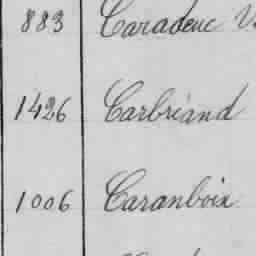 883 Caradeuc V
1426 Carbriand
1006 Caranboix